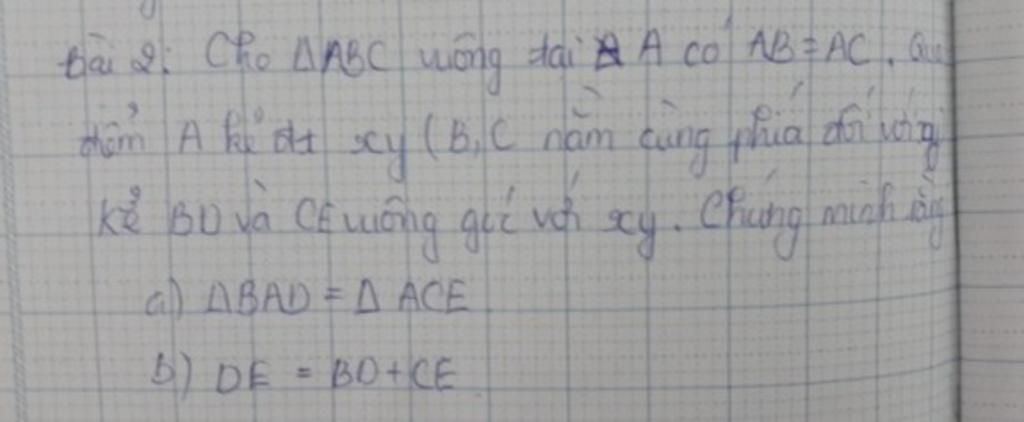 Bài 2: Cho ΔABC vuông tại A có AB = AC. Qua
điểm A kẻ đt xy (B, C nằm cùng phía đối với
Kẻ BD và CE vuông góc với xy. Chứng minh rằng
a) ΔBAD = Δ ACE
b) DE = BD + CE